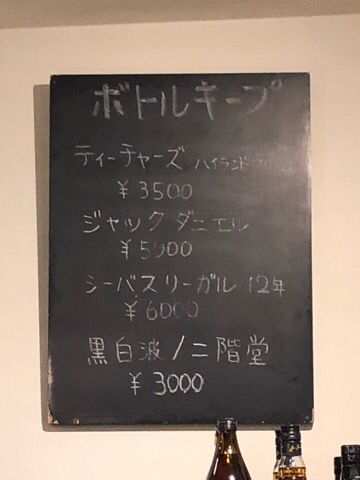 ボトルキープ
ティーチャーズ ハイランド
¥3500
ジャック ダニエル
¥5000
シーバスリーガル 12年
¥6000
黒白波/二階堂
¥3000